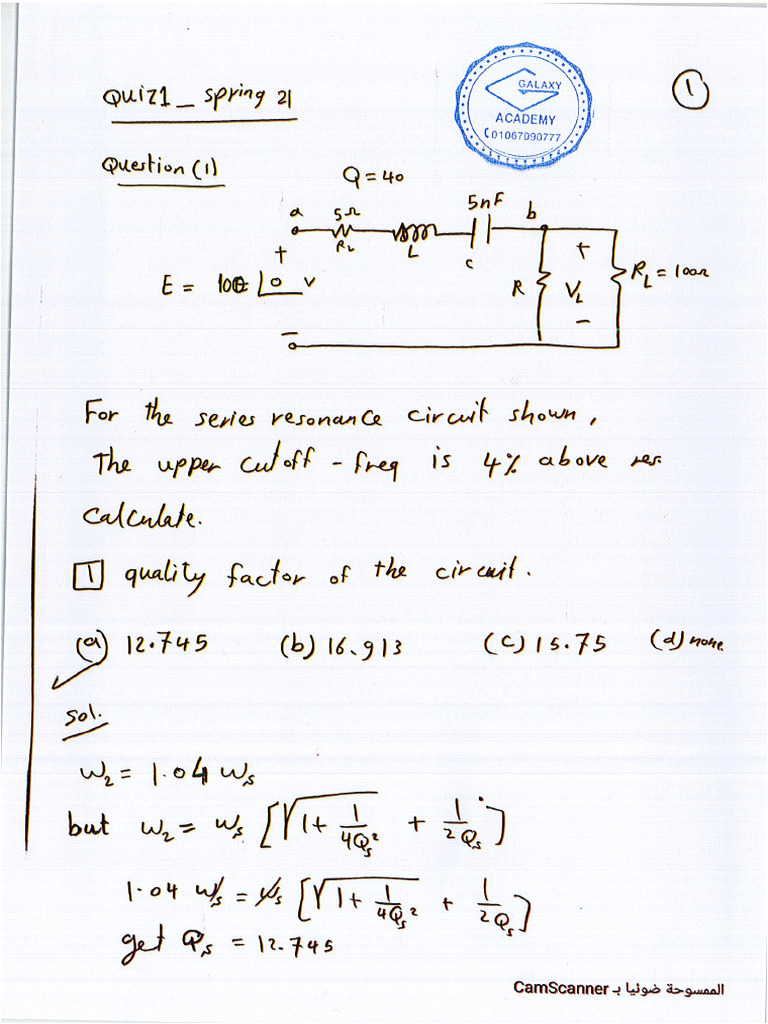 Quiz1_ spring 21
GALAXY
ACADEMY
01067090777
1
Question (1)
Q = 40
a 5Ω R_L L 5nF C b
+ + 
E = 100 ∠0 V R V_L R_L = 100Ω
− −
For the series resonance circuit shown,
The upper cutoff - freq is 4% above res.
calculate.
1 quality factor of the circuit.
(a) 12.745 (b) 16.913 (c) 15.75 (d) none
Sol.
W₂ = 1.04 Wₛ
but W₂ = Wₛ [√(1 + 1/(4Qₛ²)) + 1/(2Qₛ)]
1.04 Wₛ = Wₛ [√(1 + 1/(4Qₛ²)) + 1/(2Qₛ)]
get Qₛ = 12.745
الممسوحة ضوئيا بـ CamScanner